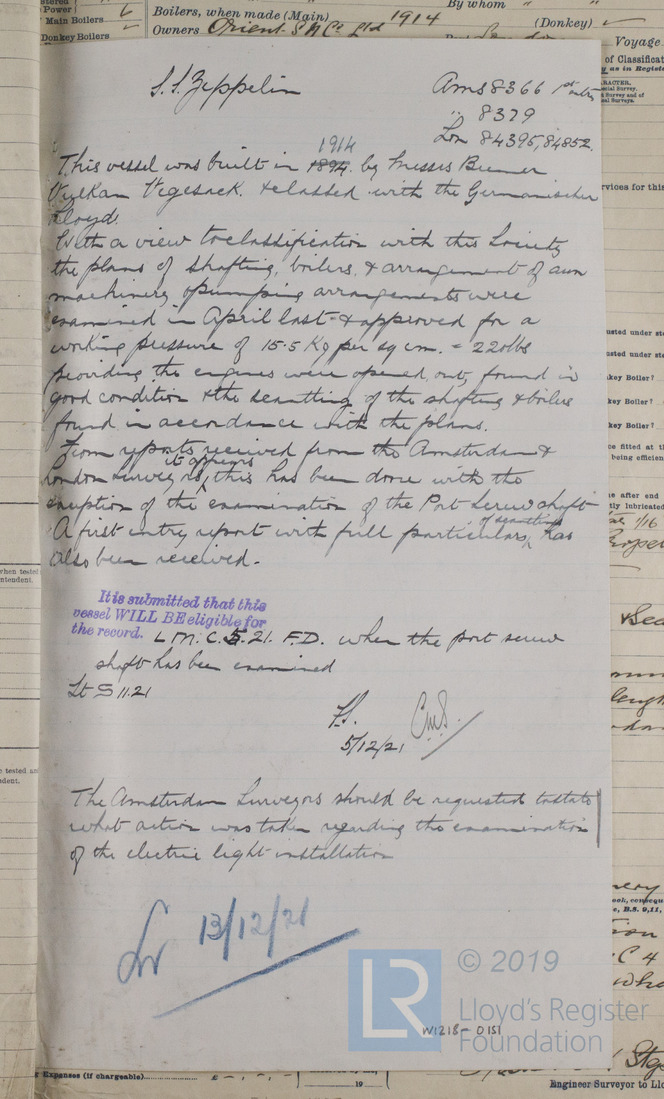 Power
Main Boilers 6
Donkey Boilers
Boilers, when made (Main) 1914
By whom "
(Donkey)
Owners Orient S N Co Ltd
Voyage
of Classificat
y as in Registe
S.S. Zeppelin
Ams 8366 1st entry
" 8379
Lon 84395, 84852.
1914
This vessel was built in 1894 by Messrs Bremer
Vulkan Vegesack. & classed with the Germanischer
Lloyd.
With a view to classification with this Society
the plans of shafting, boilers, & arrangement of
machinery & pumping arrangements were
examined in April last & approved for a
working pressure of 15.5 Kg per sq cm. = 220 lbs
providing the engines were opened out, found in
good condition & the scantling of the shafting & boilers
found in accordance with the plans.
From reports received from the Amsterdam &
it appears
London Surveyors, this has been done with the
exception of the examination of the Port Screw shaft
of scantlings
A first entry report with full particulars, has
also been received.
It is submitted that this
vessel WILL BE eligible for
the record. L.M.C. 5.21. F.D. when the port screw
shaft has been examined
Lt S 11.21
5/12/21
The Amsterdam Surveyors should be requested to state
what action was taken regarding the examination
of the electric light installation
13/12/21
© 2019
LR
Lloyd's Register
Foundation
W1218-0151
rvices for this
key Boiler?
key Boiler?
key Boiler?
ce fitted at th
being efficien
e after end
tly lubricated
1/16
when tested
ntendent.
e tested an
dent.
Expenses (if chargeable)
19
Engineer Surveyor to Llo